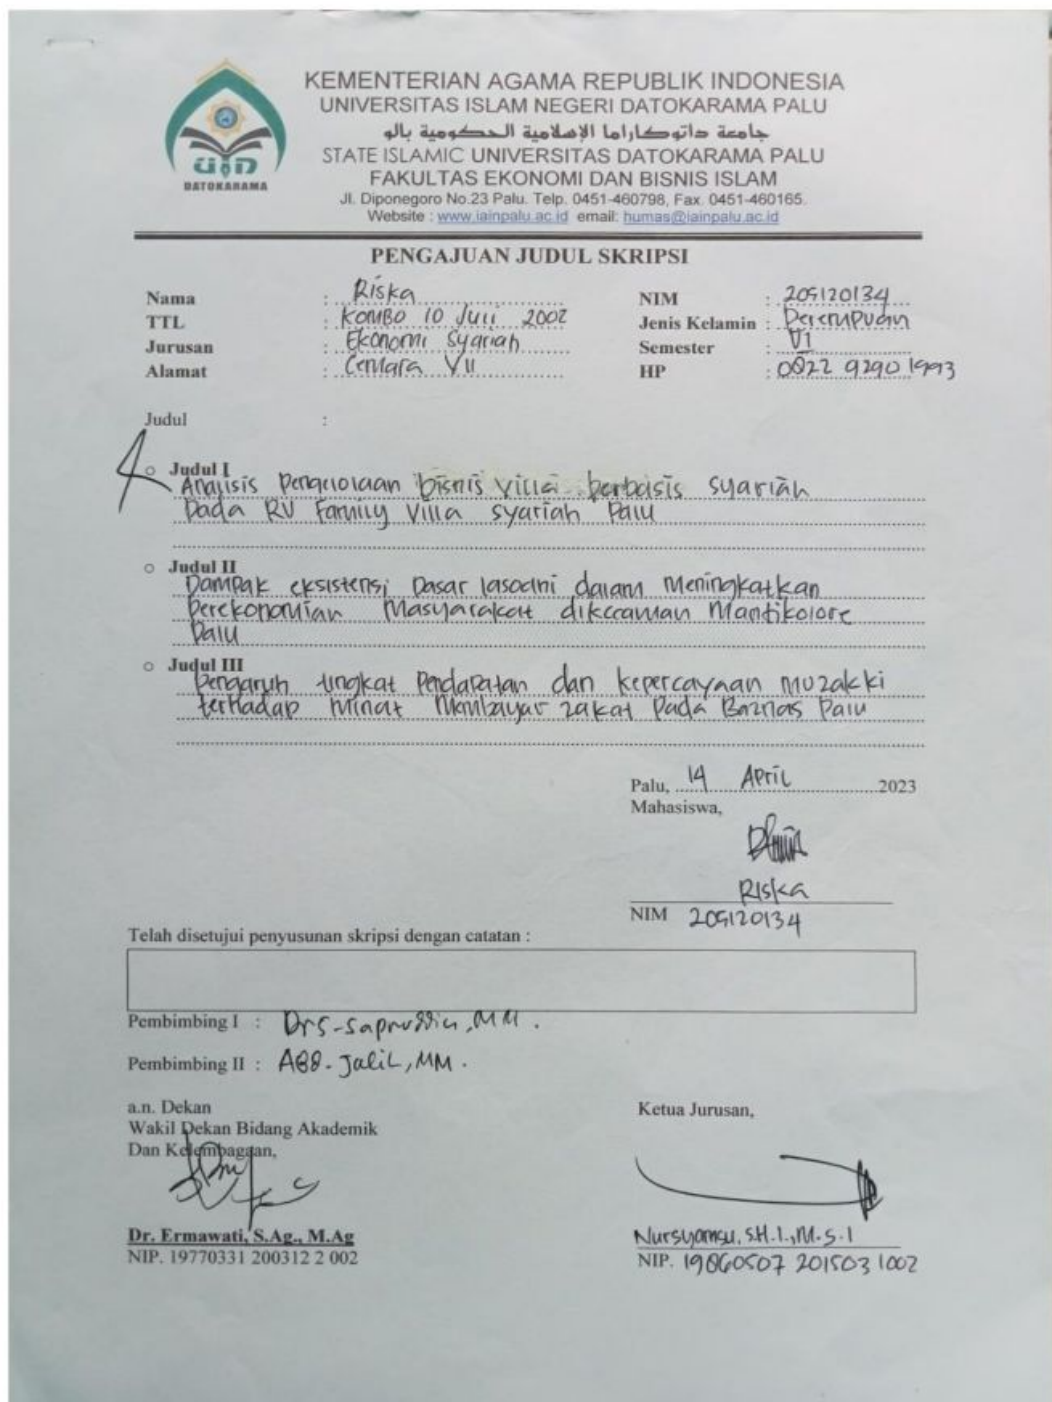 KEMENTERIAN AGAMA REPUBLIK INDONESIA
UNIVERSITAS ISLAM NEGERI DATOKARAMA PALU
جامعة داتوكاراما الإسلامية الحكومية بالو
STATE ISLAMIC UNIVERSITAS DATOKARAMA PALU
FAKULTAS EKONOMI DAN BISNIS ISLAM
Jl. Diponegoro No.23 Palu. Telp. 0451-460798, Fax. 0451-460165.
Website : www.iainpalu.ac.id email: humas@iainpalu.ac.id
UIN
DATOKARAMA
PENGAJUAN JUDUL SKRIPSI
Nama : Riska NIM : 205120134
TTL : Kombo 10 Juli 2002 Jenis Kelamin : Perempuan
Jurusan : Ekonomi Syariah Semester : VI
Alamat : Cemara VII HP : 0822 9290 1993
Judul :
Judul I
Analisis Pengelolaan bisnis villa berbasis syariah
Pada RV Family Villa syariah Palu
Judul II
Dampak eksistensi Pasar lasoani dalam Meningkatkan
Perekonomian Masyarakat Mantikolore
Palu
Judul III
Pengaruh tingkat Pendapatan dan kepercayaan muzakki
terhadap Minat Membayar zakat Pada Baznas Palu
Palu, 14 April 2023
Mahasiswa,
Riska
NIM 205120134
Telah disetujui penyusunan skripsi dengan catatan :
Pembimbing I : Drs. Sapruddin, MM.
Pembimbing II : Abd. Jalil, MM.
a.n. Dekan Ketua Jurusan,
Wakil Dekan Bidang Akademik
Dan Kelembagaan,
Dr. Ermawati, S.Ag., M.Ag Nursyamsu, S.H.I., M.S.I
NIP. 19770331 200312 2 002 NIP. 19860507 201503 1002